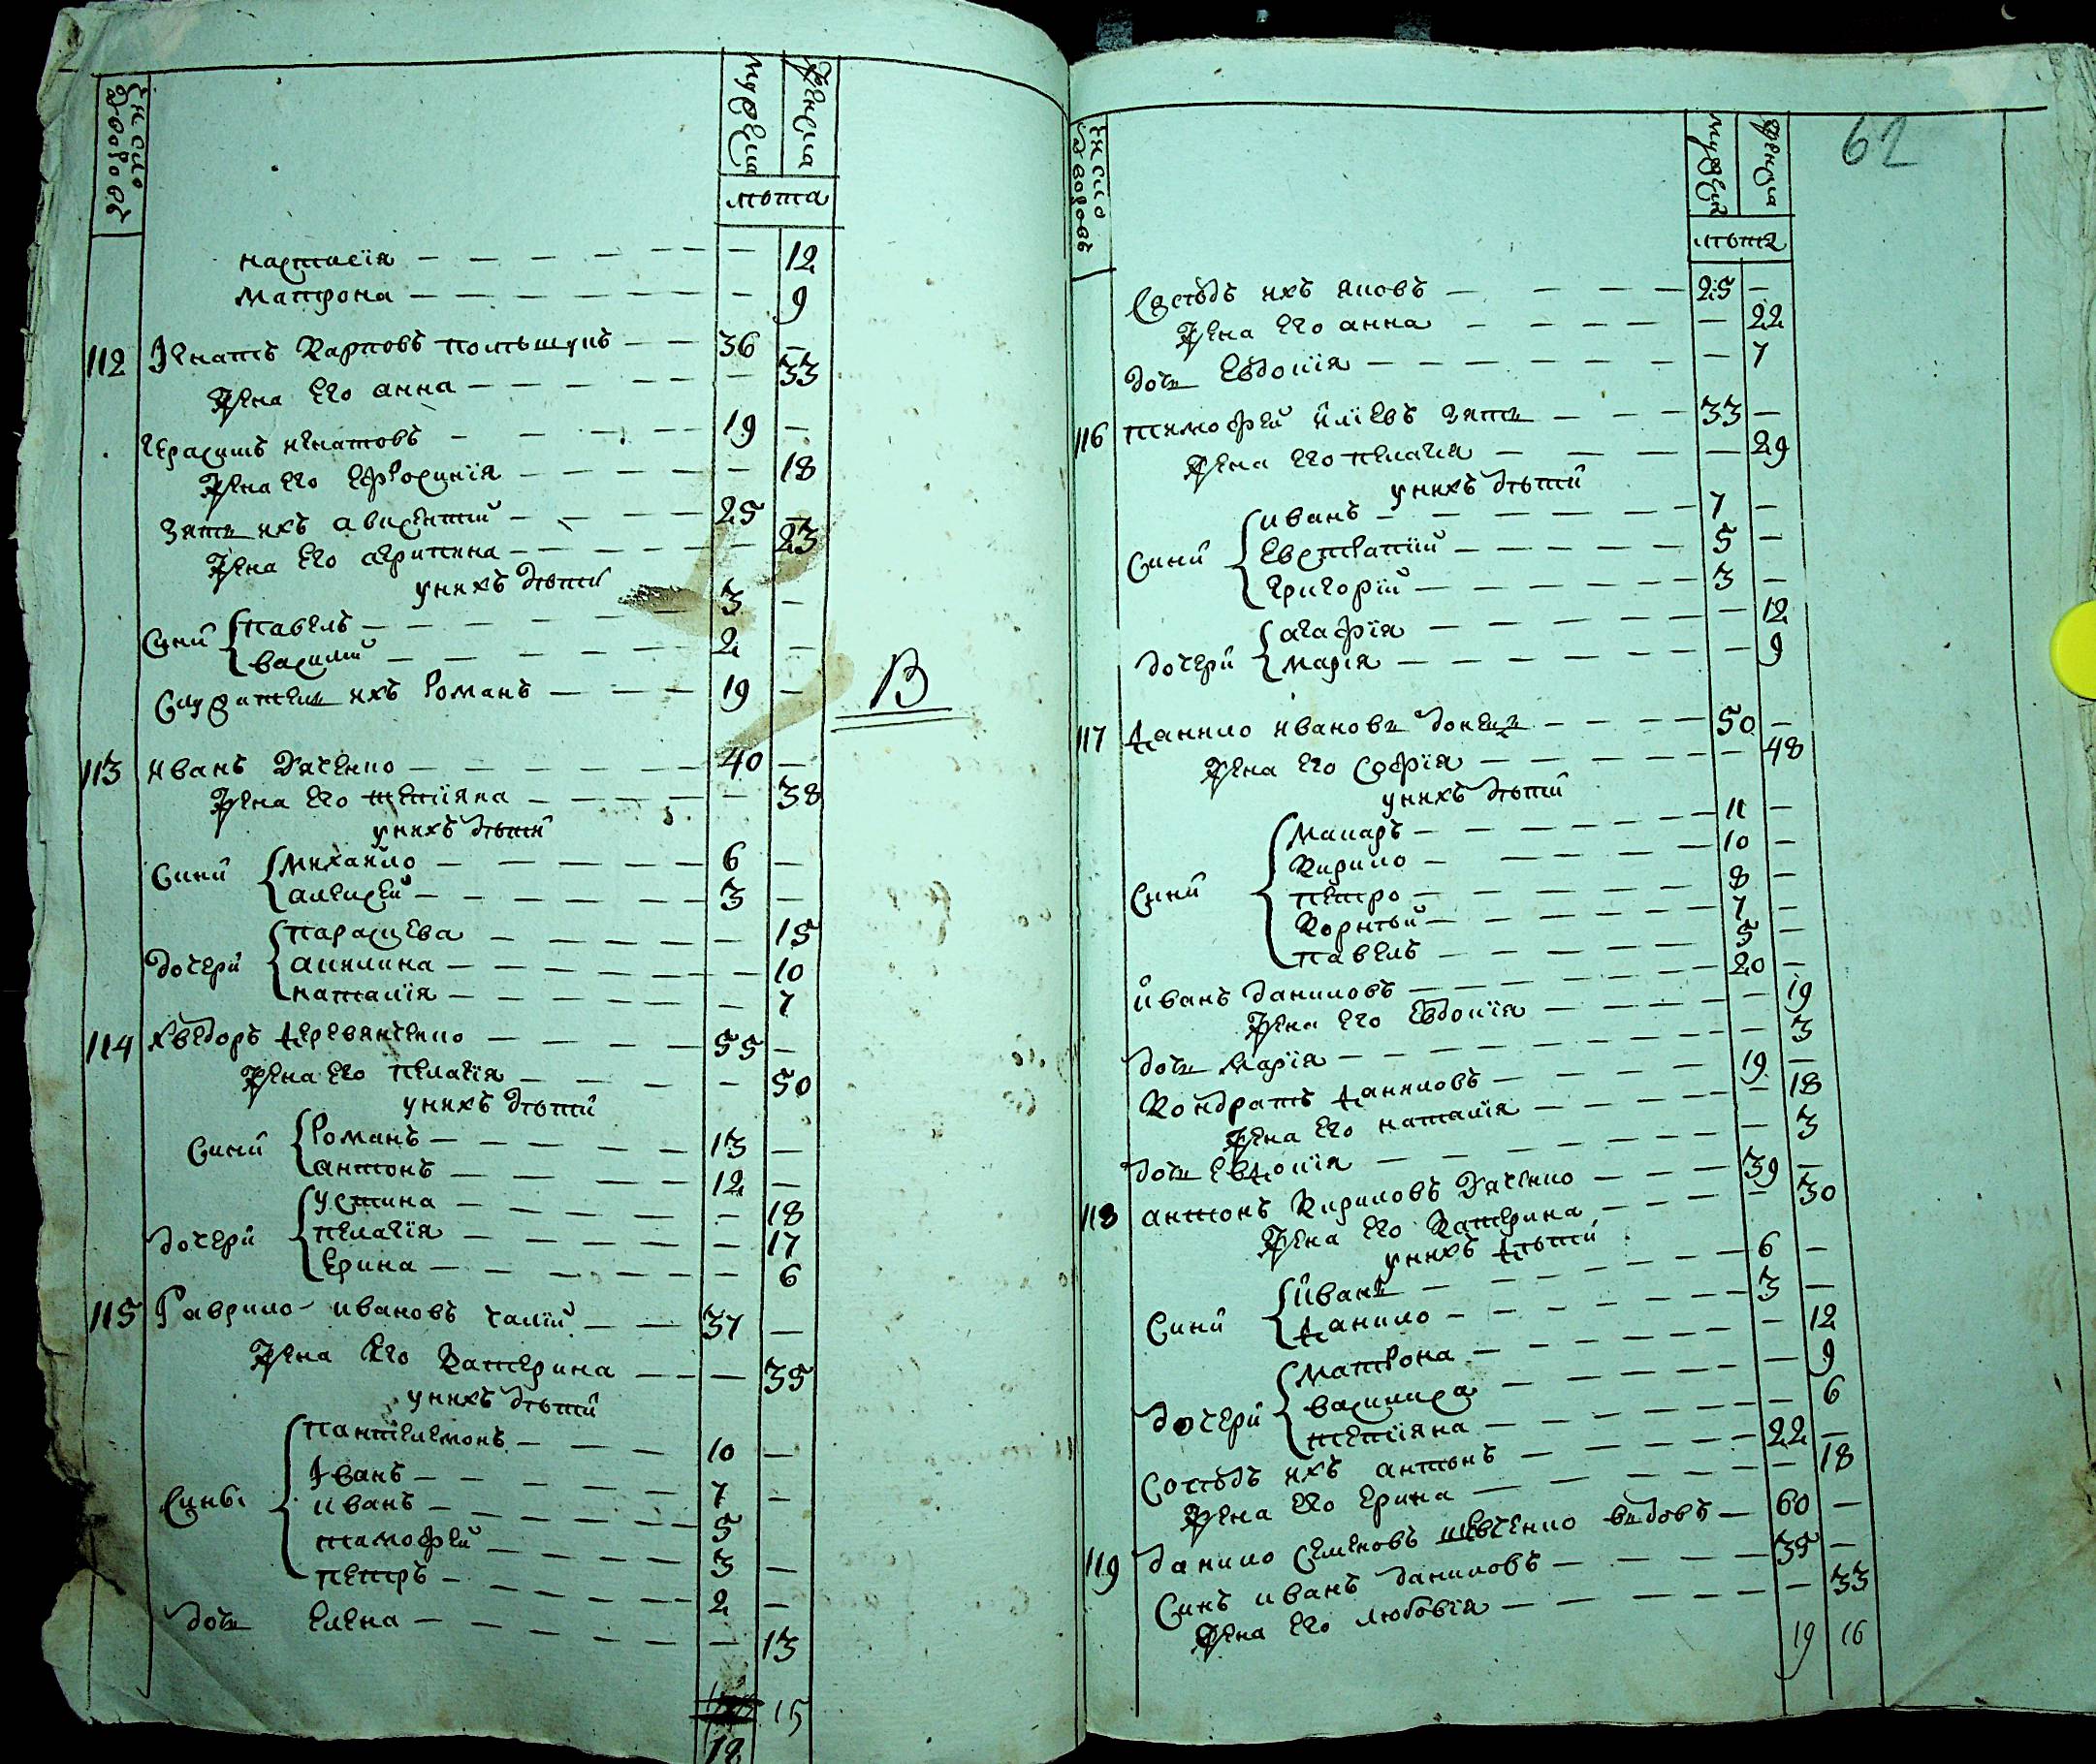 Число дворовъ
мужеска
женска
лѣта
настасїя — 12
матрона — 9
112 Игнатъ Карповъ — 36
жена его анна — 33
герасимъ игнатовъ — 19
жена его ефросинїя — 18
зять ихъ авксентий — 25
жена его агрипина — 23
у нихъ дѣти
сини павелъ — 3
василий — 2
служитель ихъ романъ — 19
В
113 иванъ Дяченко — 40
жена его тетїяна — 38
у нихъ дѣти
сини михайло — 6
алексей — 3
дочери параскева — 15
акилина — 10
наталїя — 7
114 хведоръ деревянченко — 55
жена его пелагїя — 50
у нихъ дѣти
сини романъ — 13
антонъ — 12
дочери устина — 18
пелагїя — 17
ерина — 6
115 Гаврило ивановъ чалїй — 37
жена его Катерина — 35
у нихъ дѣти
сины пантелемонъ — 10
Іванъ — 7
иванъ — 5
тимофей — 3
петръ — 2
дочь елена — 13
15
18
Число дворовъ
мужеска
женска
лѣта
62
сусѣдъ ихъ яковъ — 25
жена его анна — 22
дочь евдокїя — 7
116 тимофей илїевъ зять — 33
жена его пелагїя — 29
у нихъ дѣти
сини иванъ — 7
евстратїй — 5
григорїй — 3
дочери агафїя — 12
марїя — 9
117 данило ивановъ донецъ — 50
жена его софїя — 48
у нихъ дѣти
сини макаръ — 11
Кирило — 10
петро — 8
Корнѣй — 7
павелъ — 5
иванъ даниловъ — 20
жена его евдокїя — 19
дочь марїя — 3
Кондратъ даниловъ — 19
жена его наталїя — 18
дочь евдокїя — 3
118 антонъ Кириловъ Дяченко — 39
жена его Катерина — 30
у нихъ дѣти
сини иванъ — 6
данило — 3
дочери матрона — 12
василиса — 9
тетїяна — 6
сосѣдъ ихъ антонъ — 22
жена его ерина — 18
119 данило семеновъ шевченко вдовъ — 60
синъ иванъ даниловъ — 35
жена его любовїя — 33
19 16